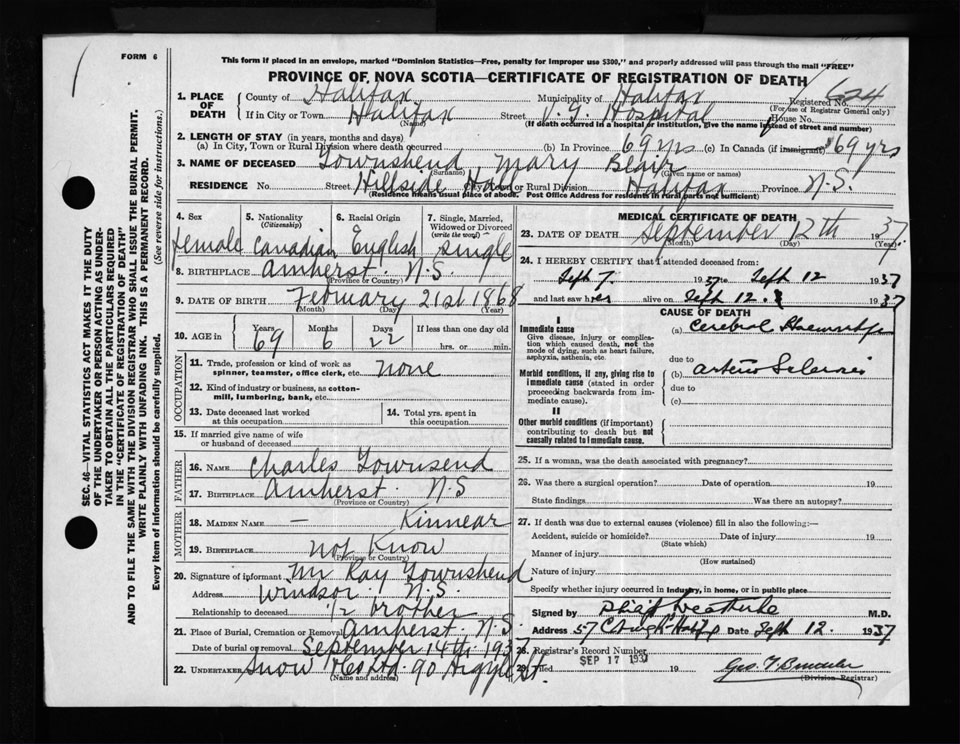 FORM 6
This form if placed in an envelope, marked "Dominion Statistics—Free, penalty for improper use $300," and properly addressed will pass through the mail "FREE"
PROVINCE OF NOVA SCOTIA—CERTIFICATE OF REGISTRATION OF DEATH
SEC. 46—VITAL STATISTICS ACT MAKES IT THE DUTY
OF THE UNDERTAKER OR PERSON ACTING AS UNDER-
TAKER TO OBTAIN ALL THE PARTICULARS REQUIRED
IN THE "CERTIFICATE OF REGISTRATION OF DEATH"
AND TO FILE THE SAME WITH THE DIVISION REGISTRAR WHO SHALL ISSUE THE BURIAL PERMIT.
WRITE PLAINLY WITH UNFADING INK. THIS IS A PERMANENT RECORD.
Every item of information should be carefully supplied. (See reverse side for instructions.)
1. PLACE OF DEATH
County of Halifax Municipality of Halifax Registered No. 624
(For use of Registrar General only)
If in City or Town Halifax Street V. G. Hospital House No.
(Name) (If death occurred in a hospital or institution, give the name instead of street and number)
2. LENGTH OF STAY (in years, months and days)
(a) In City, Town or Rural Division where death occurred (b) In Province 69 yrs (c) In Canada (if immigrant) 69 yrs
3. NAME OF DECEASED Townshend, Mary Blair
(Surname) (Given name or names)
RESIDENCE No. Street Hillside Hall City, Town or Rural Division Halifax Province N.S.
(Residence means usual place of abode. Post Office Address for residents in rural parts not sufficient)
4. Sex 5. Nationality (Citizenship) 6. Racial Origin 7. Single, Married, Widowed or Divorced (write the word)
female Canadian English single
8. BIRTHPLACE Amherst. N.S.
(Province or Country)
9. DATE OF BIRTH February 21st 1868
(Month) (Day) (Year)
10. AGE in Years Months Days If less than one day old
69 6 22 hrs. or min.
OCCUPATION
11. Trade, profession or kind of work as spinner, teamster, office clerk, etc. none
12. Kind of industry or business, as cotton-mill, lumbering, bank, etc.
13. Date deceased last worked at this occupation
14. Total yrs. spent in this occupation
15. If married give name of wife or husband of deceased
FATHER
16. NAME Charles Townsend
17. BIRTHPLACE Amherst. N.S
(Province or Country)
MOTHER
18. MAIDEN NAME — Kinnear
19. BIRTHPLACE not Know
(Province or Country)
20. Signature of informant Mr Ray Townshend
Address Windsor. N.S.
Relationship to deceased 1/2 brother
21. Place of Burial, Cremation or Removal Amherst. N.S.
Date of burial or removal September 14th 1937
22. UNDERTAKER Snow & Co Ltd. 90 Argyle St.
(Name and address)
MEDICAL CERTIFICATE OF DEATH
23. DATE OF DEATH September 12th 1937
(Month) (Day) (Year)
24. I HEREBY CERTIFY that I attended deceased from:
Sept 7. 1937 to Sept 12 1937
and last saw her alive on Sept 12. 1937
CAUSE OF DEATH
I
Immediate cause
Give disease, injury or complication which caused death, not the mode of dying, such as heart failure, asphyxia, asthenia, etc.
(a) Cerebral Haemorrhage
due to
Morbid conditions, if any, giving rise to immediate cause (stated in order proceeding backwards from immediate cause).
(b) Arterio Sclerosis
due to
(c)
II
Other morbid conditions (if important) contributing to death but not causally related to immediate cause.
25. If a woman, was the death associated with pregnancy?
26. Was there a surgical operation? Date of operation 19
State findings Was there an autopsy?
27. If death was due to external causes (violence) fill in also the following:—
Accident, suicide or homicide? Date of injury 19
(State which)
Manner of injury
(How sustained)
Nature of injury
Specify whether injury occurred in industry, in home, or in public place
Signed by M.D.
Address 57 Date Sept 12. 1937
28. Registrar's Record Number
29. Filed SEP 17 1937 19
(Division Registrar)